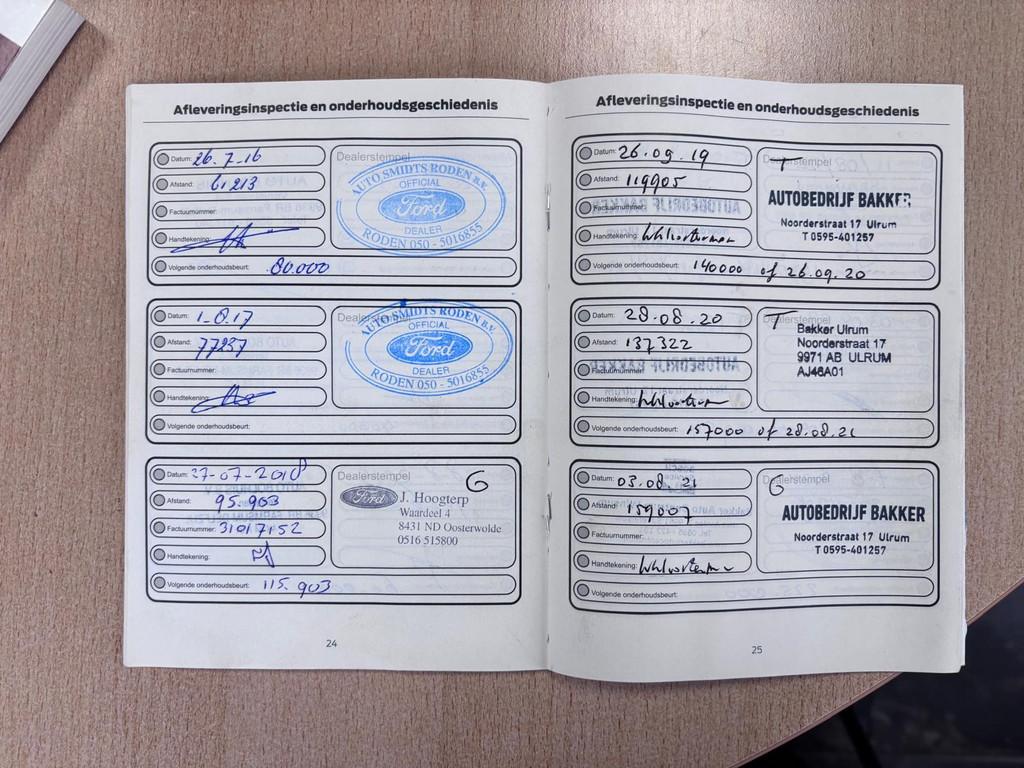 Afleveringsinspectie en onderhoudsgeschiedenis
Datum: 26.7-16
Afstand: 61213
Factuurnummer:
Handtekening:
Volgende onderhoudsbeurt: 80.000
Dealerstempel
AUTO SMIDTS RODEN B.V.
OFFICIAL
Ford
DEALER
RODEN 050 - 5016855
Datum: 1-8.17
Afstand: 77237
Factuurnummer:
Handtekening:
Volgende onderhoudsbeurt:
Dealerstempel
AUTO SMIDTS RODEN B.V.
OFFICIAL
Ford
DEALER
RODEN 050 - 5016855
Datum: 27-07-2018
Afstand: 95.903
Factuurnummer: 31017152
Handtekening:
Volgende onderhoudsbeurt: 115.903
Dealerstempel G
Ford J. Hoogterp
Waardeel 4
8431 ND Oosterwolde
0516 515800
24
Afleveringsinspectie en onderhoudsgeschiedenis
Datum: 26.09.19
Afstand: 119905
Factuurnummer:
Handtekening:
Volgende onderhoudsbeurt: 140000 of 26.09.20
Dealerstempel
T
AUTOBEDRIJF BAKKER
Noorderstraat 17 Ulrum
T 0595-401257
Datum: 28.08.20
Afstand: 137322
Factuurnummer:
Handtekening:
Volgende onderhoudsbeurt: 157000 of 28.08.21
Dealerstempel
T
Bakker Ulrum
Noorderstraat 17
9971 AB ULRUM
AJ46A01
Datum: 03.08.21
Afstand: 159007
Factuurnummer:
Handtekening:
Volgende onderhoudsbeurt:
Dealerstempel
G
AUTOBEDRIJF BAKKER
Noorderstraat 17 Ulrum
T 0595-401257
25